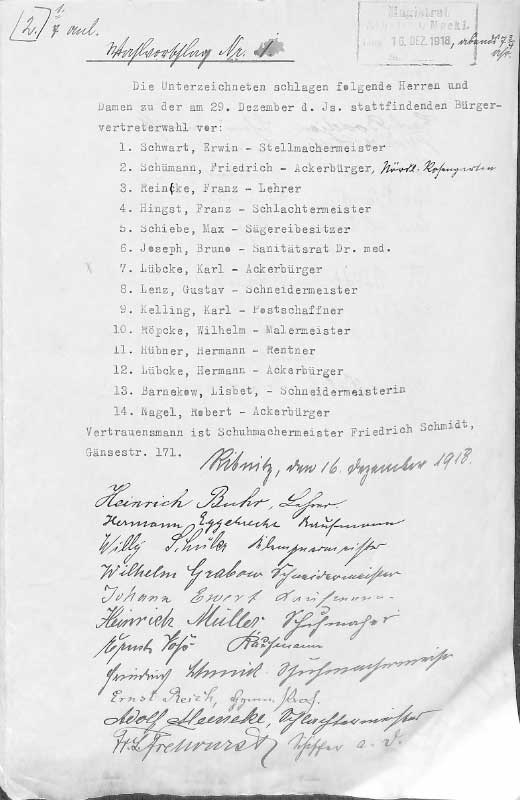 (2.)
Wahlvorschlag Nr. 1
Magistrat
16. DEZ. 1918, abends 7 3/4
Uhr.
Die Unterzeichneten schlagen folgende Herren und
Damen zu der am 29. Dezember d. Js. stattfindenden Bürger-
vertreterwahl vor:
1. Schwart, Erwin - Stellmachermeister
2. Schümann, Friedrich - Ackerbürger, Nördl. Rosengarten
3. Reincke, Franz - Lehrer
4. Hingst, Franz - Schlachtermeister
5. Schiebe, Max - Sägereibesitzer
6. Joseph, Bruno - Sanitätsrat Dr. med.
7. Lübcke, Karl - Ackerbürger
8. Lenz, Gustav - Schneidermeister
9. Kelling, Karl - Postschaffner
10. Röpcke, Wilhelm - Malermeister
11. Hübner, Hermann - Rentner
12. Lübcke, Hermann - Ackerbürger
13. Barnekow, Lisbet, - Schneidermeisterin
14. Nagel, Robert - Ackerbürger
Vertrauensmann ist Schuhmachermeister Friedrich Schmidt,
Gänsestr. 171.
Ribnitz, den 16. Dezember 1918.
Heinrich Buhr, Lehrer.
Hermann Kaufmann
Willy Klempnermeister
Wilhelm Grabow Schneidermeister
Johann Ewert Kaufmann
Heinrich Müller Schuhmacher
Kaufmann
Friedrich Schmidt Schuhmachermeister
Ernst Reich, Gymn. Prof.
Adolf Schlachtermeister
a. D.